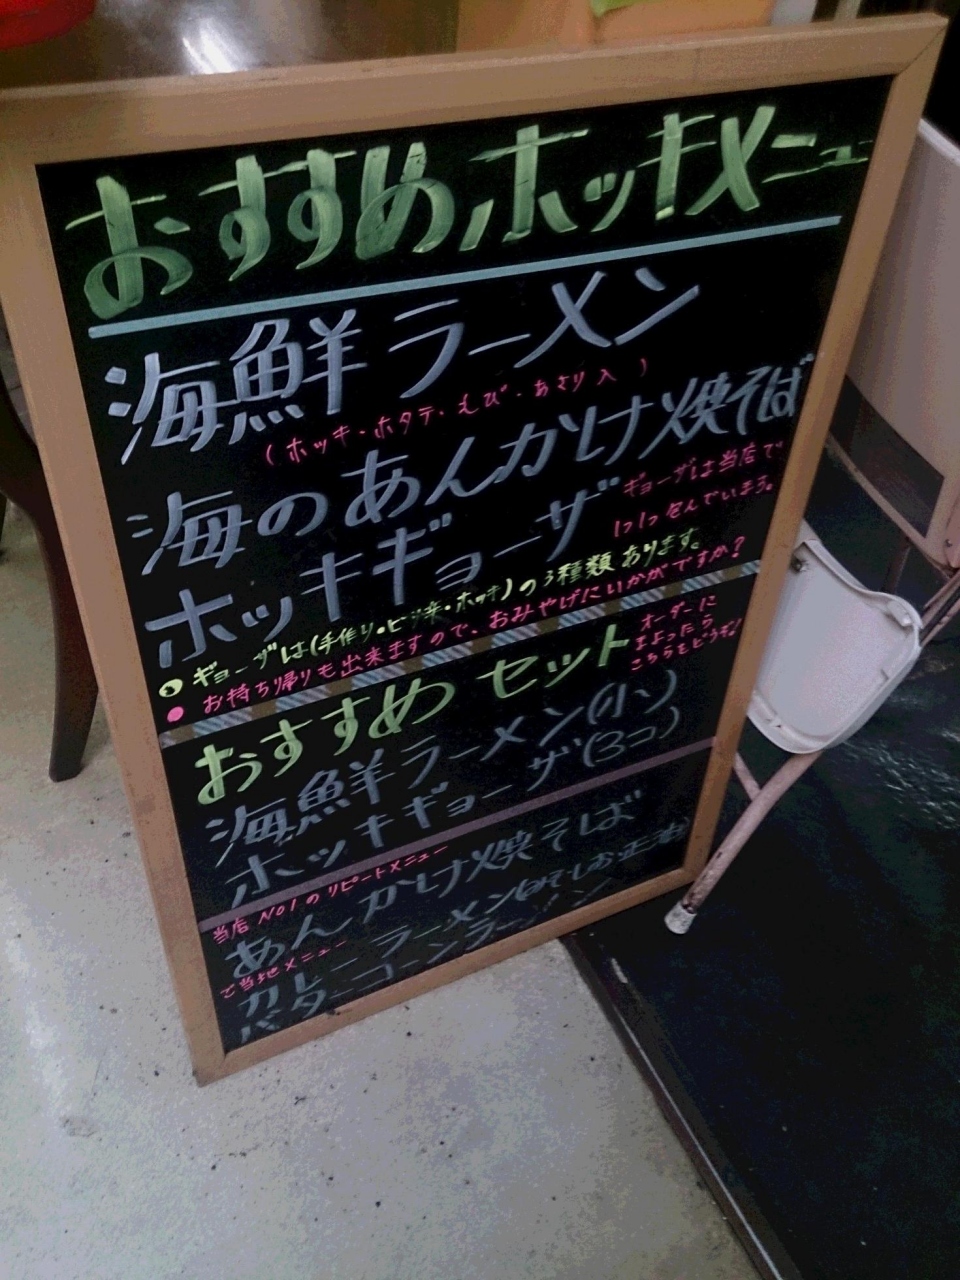 おすすめホッキメニュー
海鮮ラーメン
(ホッキ・ホタテ・えび・あさり入)
海のあんかけ焼そば
ホッキギョーザ
ギョーザは当店で
1つ1つ包んでいます。
ギョーザは(手作り・ピリ辛・ホッキ)の3種類あります。
お持ち帰りも出来ますので、おみやげにいかがですか?
おすすめセット
オーダーに
まよったら
こちらをどうぞ!
海鮮ラーメン(小)
ホッキギョーザ(3コ)
当店No1のリピートメニュー
あんかけ焼そば
ご当地メニュー
カレーラーメン(みそ・しお・正油
バターコーンラーメン